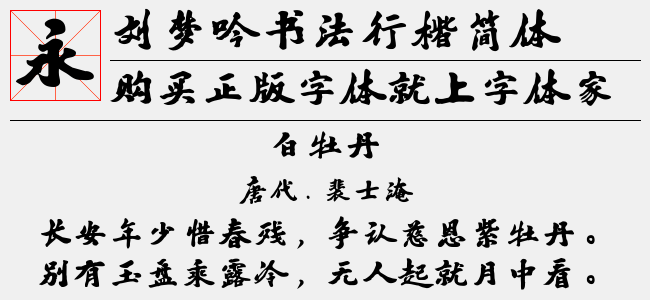 永
刘梦吟书法行楷简体
购买正版字体就上字体家
白牡丹
唐代．裴士淹
长安年少惜春残，争认慈恩紫牡丹。
别有玉盘乘露冷，无人起就月中看。